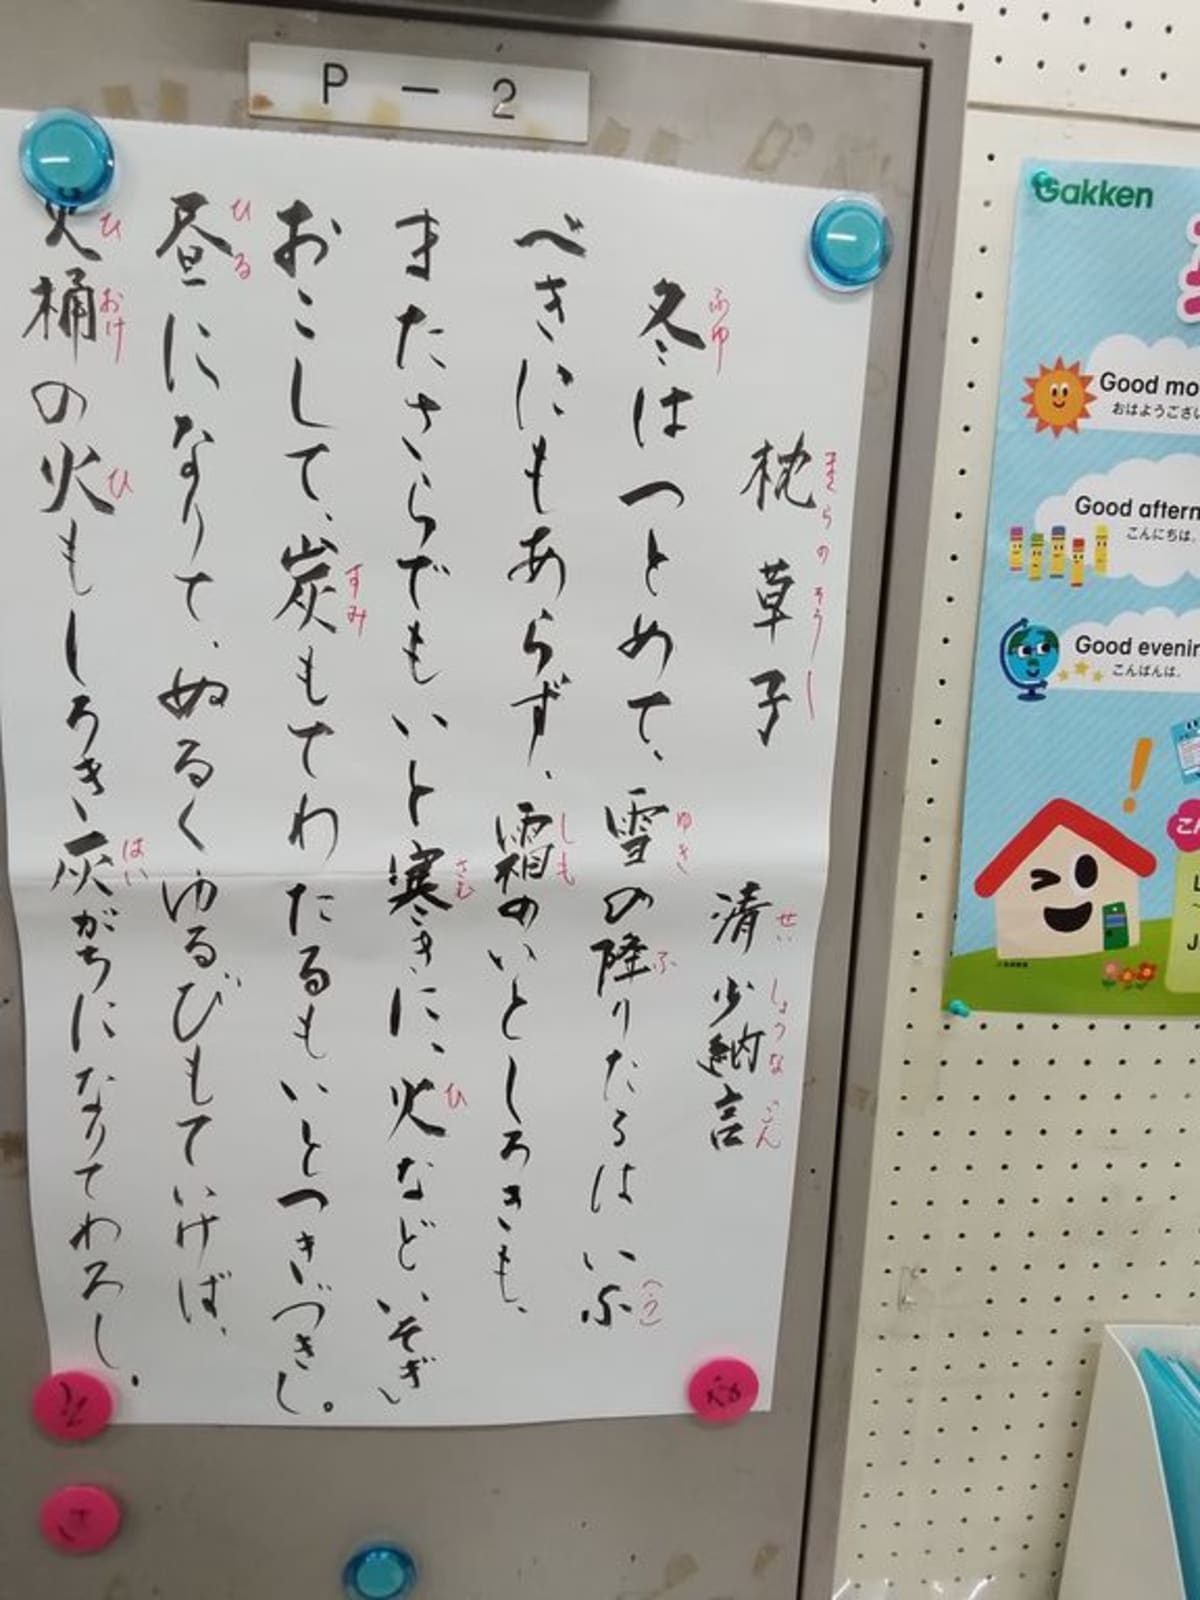 P－2
枕草子
まくらのそうし
清少納言
せいしょうなごん
冬はつとめて、雪の降りたるはいふ
ふゆ ゆき ふ (う)
べきにもあらず、霜のいとしろきも、
しも
またさらでもいと寒きに、火などいそぎ
さむ ひ
おこして、炭もてわたるもいとつきづきし。
すみ
昼になりて、ぬるくゆるびもていけば、
ひる
火桶の火もしろき灰がちになりてわろし。
ひ おけ ひ はい
Gakken
Good mo
おはようござい
Good aftern
こんにちは。
Good evenin
こんばんは。
さ